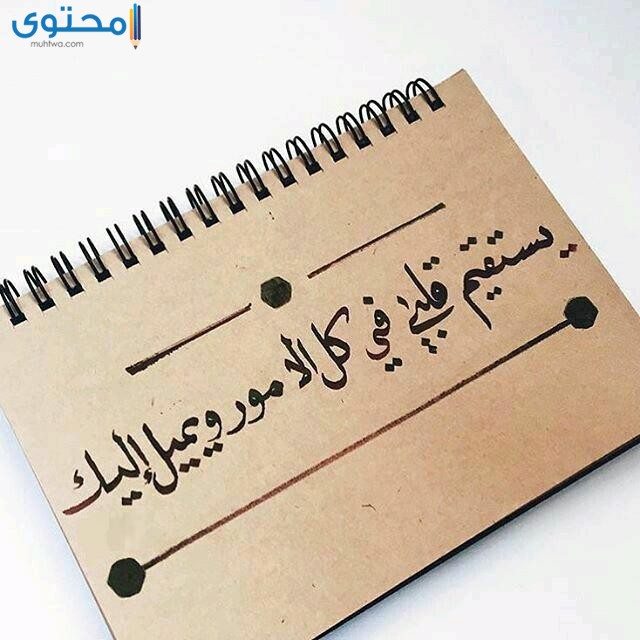 محتوى
muhtwa.com
يستقيم قلبي في كل الامور ويميل إليك